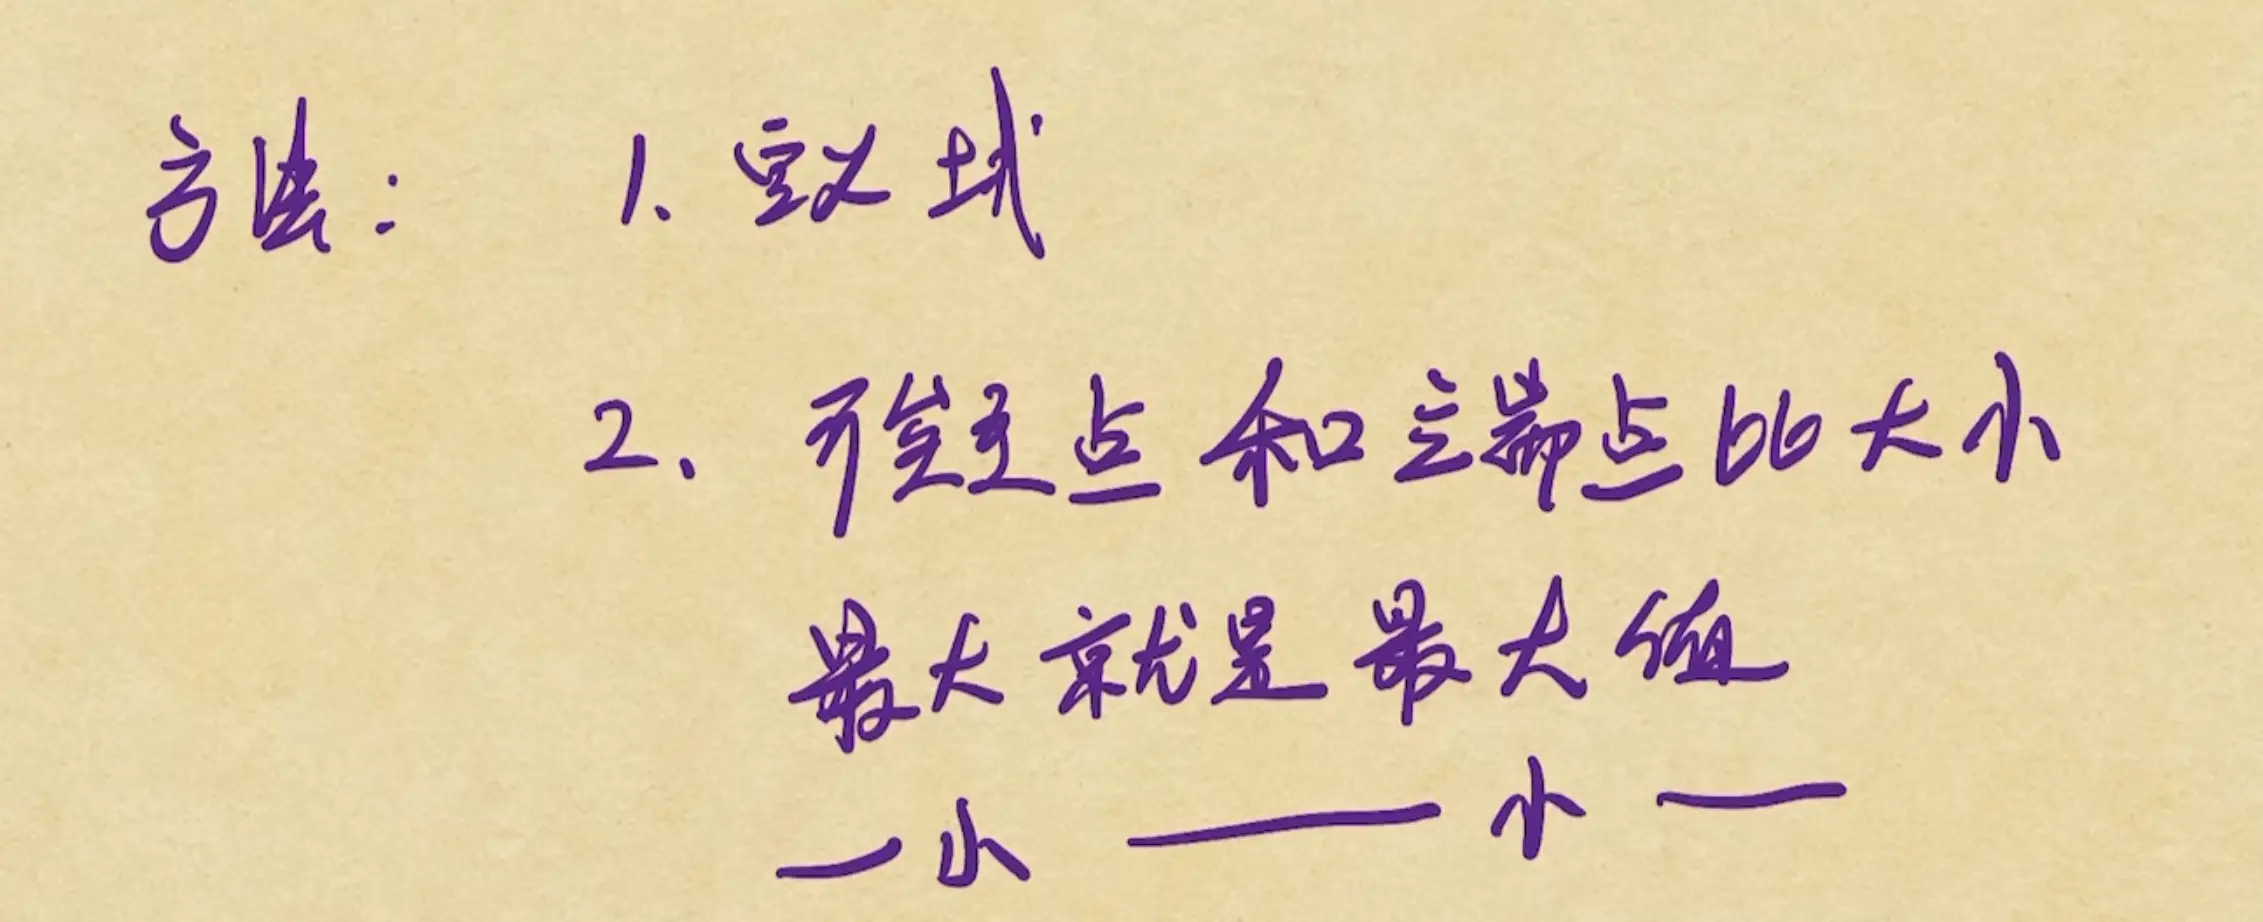 方法: 1. 定义域
2. 点和端点比大小
最大就是最大值
—小——小—